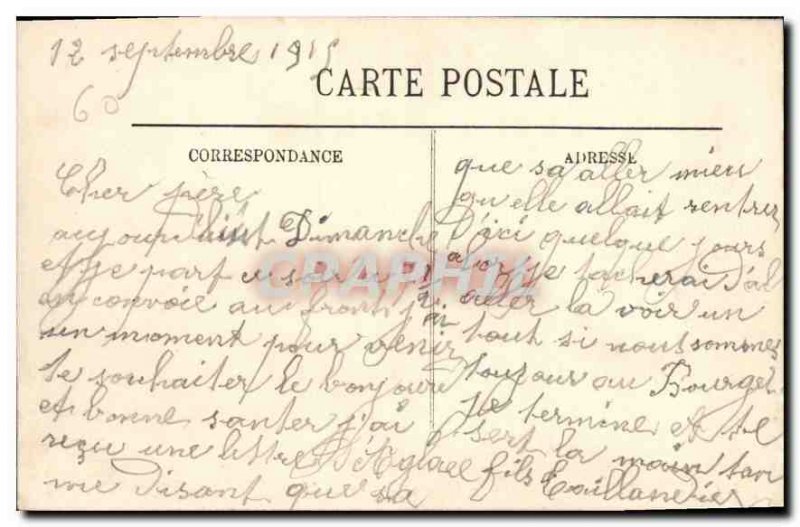 12 septembre 1915
60
CARTE POSTALE
CORRESPONDANCE
Cher père
aujourduist Dimanche
et je part ce soir
en convoie au front j'ai
un moment pour venir
te souhaiter le bonjour
et bonne santer j'ai
reçu une lettre d'Aglaee
me disant que sa
ADRESSE
que sa aller mieu
qu'elle allait rentrez
d'ici quelque jours
alor je tacherai d'al
aler la voir un
tout si nous sommes
toujour au Bourget
je termine et te
sert la main ton
fils Taillandier
CRAPHIL